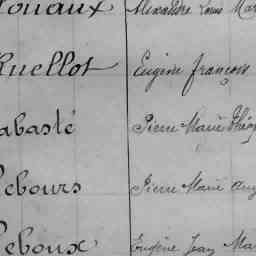 Alexandre Louis Mar
Ruellot Eugène françois
abasté Pierre Marie Théop
Lebours Pierre Marie Aug
Leboux Eugène Jean Ma